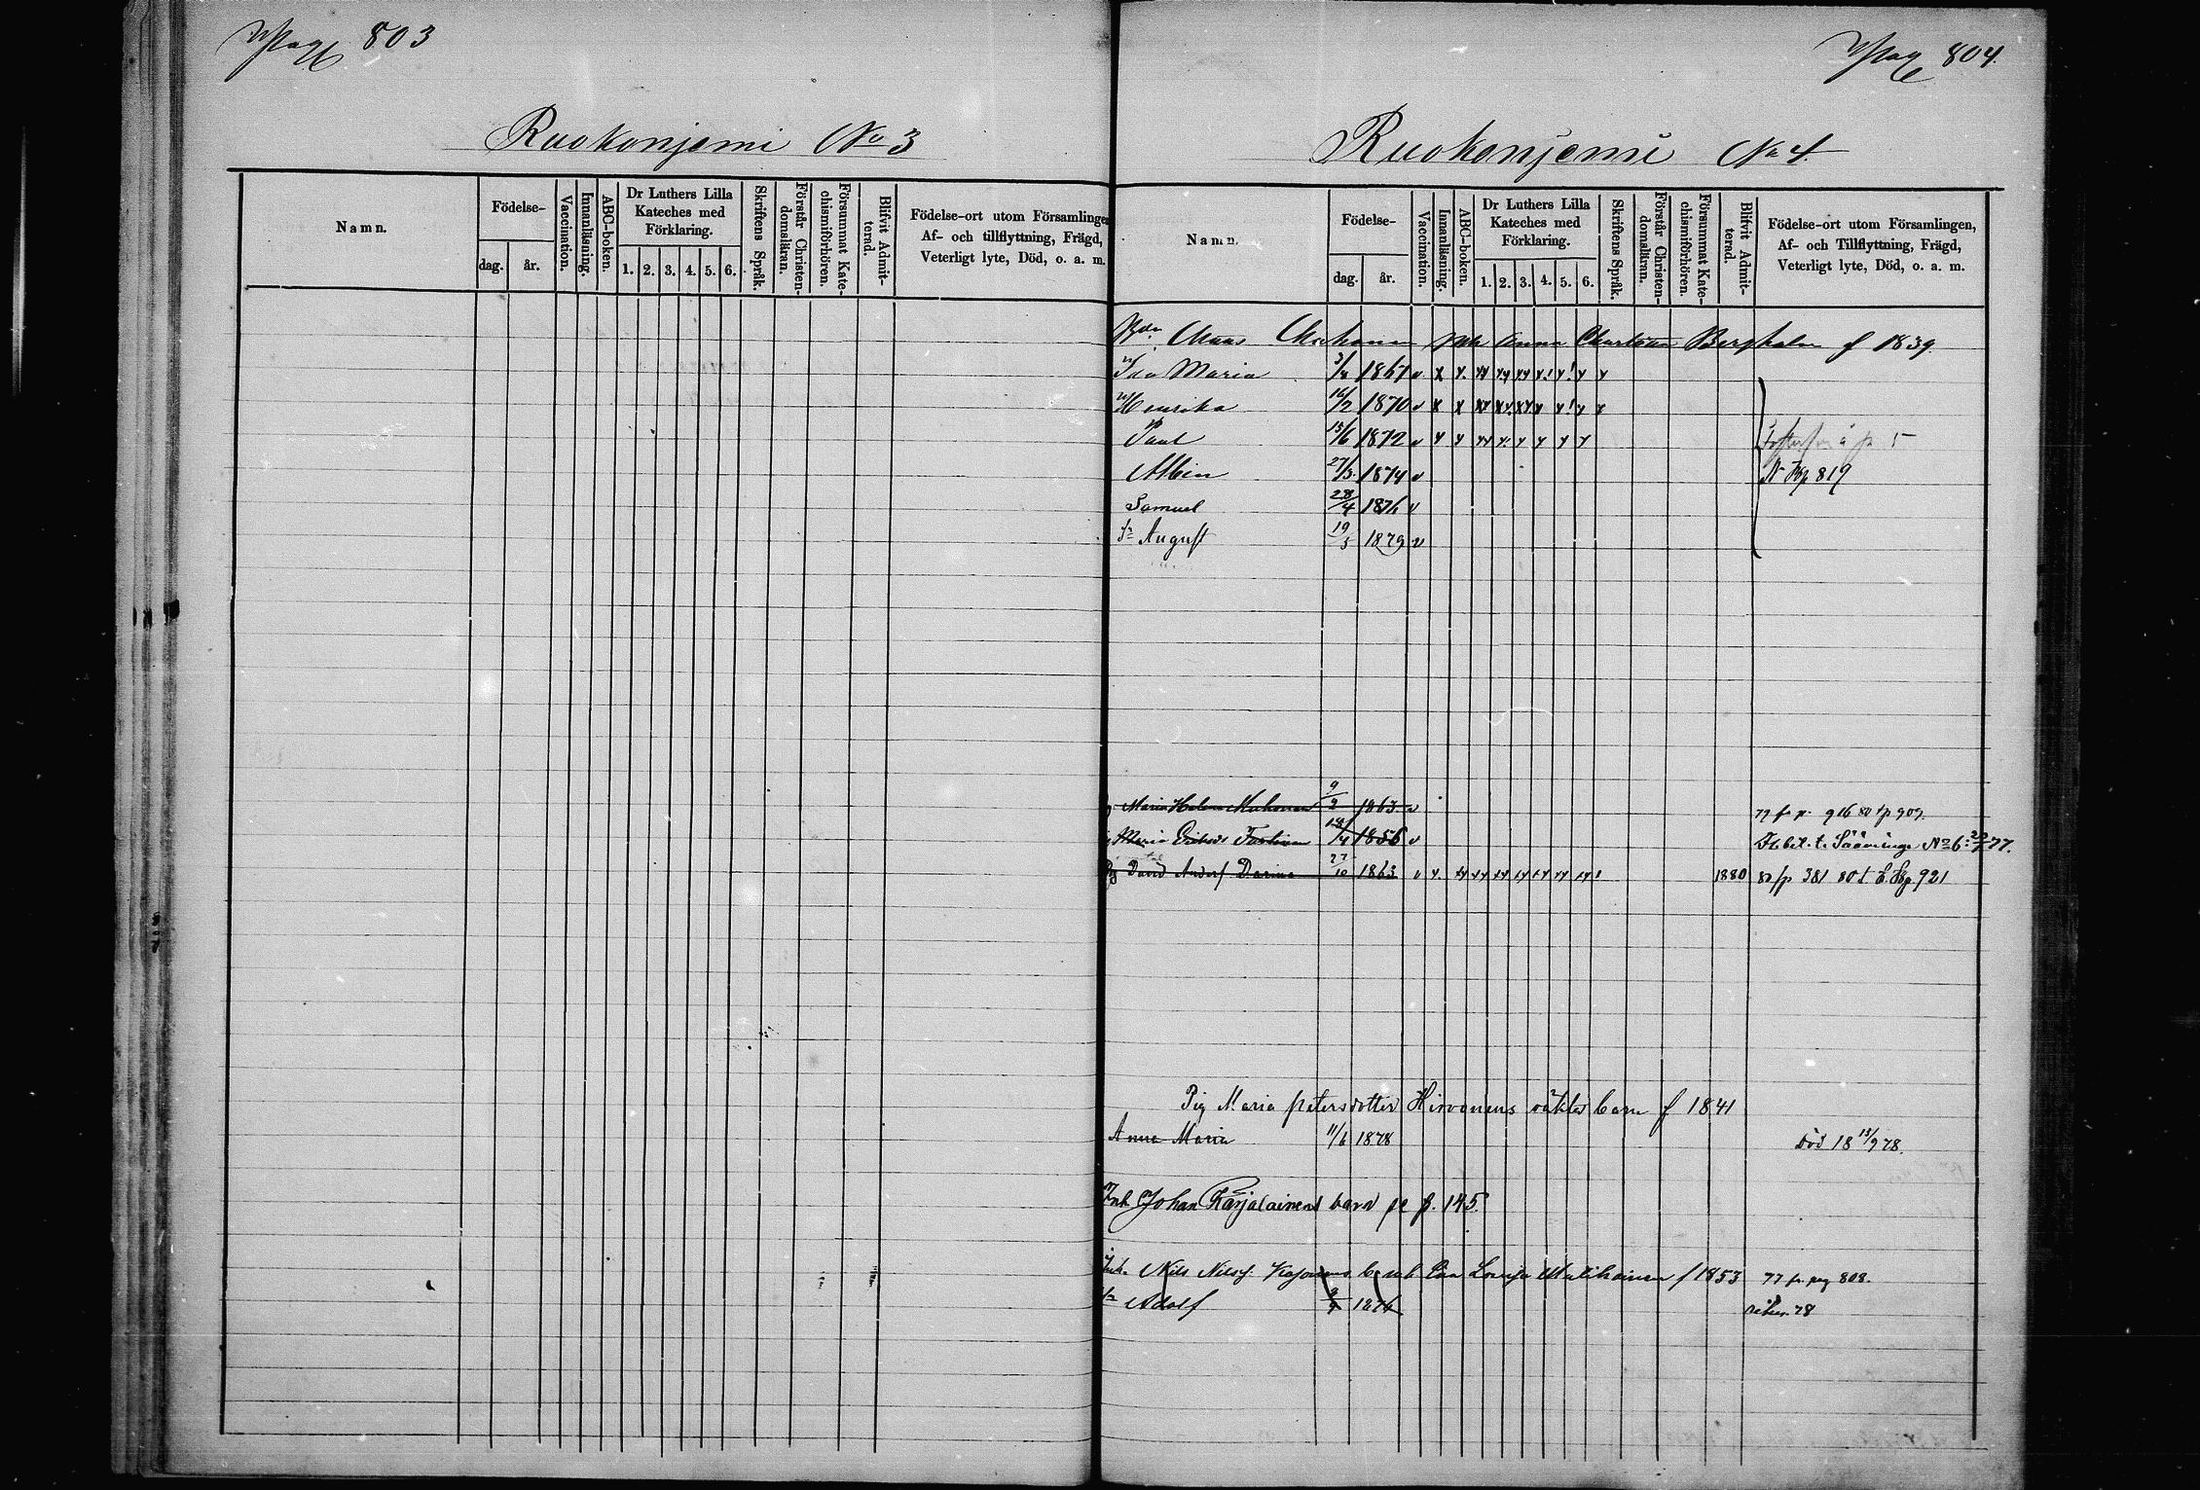 Pag 803
Ruokonjemi No 3
Namn.
Födelse-
dag.
år.
Vaccination.
Innanläsning.
ABC-boken.
Dr Luthers Lilla
Kateches med
Förklaring.
1. 2. 3. 4. 5. 6.
Skriftens Språk.
Förstår Christen-
domsläran.
Försummat Kate-
chismiförhören.
Blifvit Admit-
terad.
Födelse-ort utom Församlingen
Af- och tillflyttning, Frägd,
Veterligt lyte, Död, o. a. m.
Pag 804.
Ruokonjemi No 4.
Namn.
Födelse-
dag.
år.
Vaccination.
Innanläsning.
ABC-boken.
Dr Luthers Lilla
Kateches med
Förklaring.
1. 2. 3. 4. 5. 6.
Skriftens Språk.
Förstår Christen-
domsläran.
Försummat Kate-
chismiförhören.
Blifvit Admit-
terad.
Födelse-ort utom Församlingen,
Af- och Tillflyttning, Frägd,
Veterligt lyte, Död, o. a. m.
Anna Bergholm f 1839.
Ida Maria 3/8 1867 v
Henrika 16/2 1870 v
Paul 15/6 1872 v
Albin 27/3 1874 v
N Kp 819
Samuel 28/4 1876 v
August 19/5 1879 v
Maria Helena Muhonen 9/2 1863 v 79 fr p. 916 80 t p 909.
Maria 1856 v Flbet. t. Sääminge No 6: 77.
David Anderss 27/10 1863 v 1880 80 fp 381 80 t Kp 921
Pig Maria Petersdotter Hirvonens oäkta barn f 1841
Anna Maria 11/6 1878 död 18 13/9 78.
Inh Johan Karjalainens barn se p. 145.
Inh. Nils Nilss. Lovisa f 1853 77 fr. pag 808.
Adolf 1876